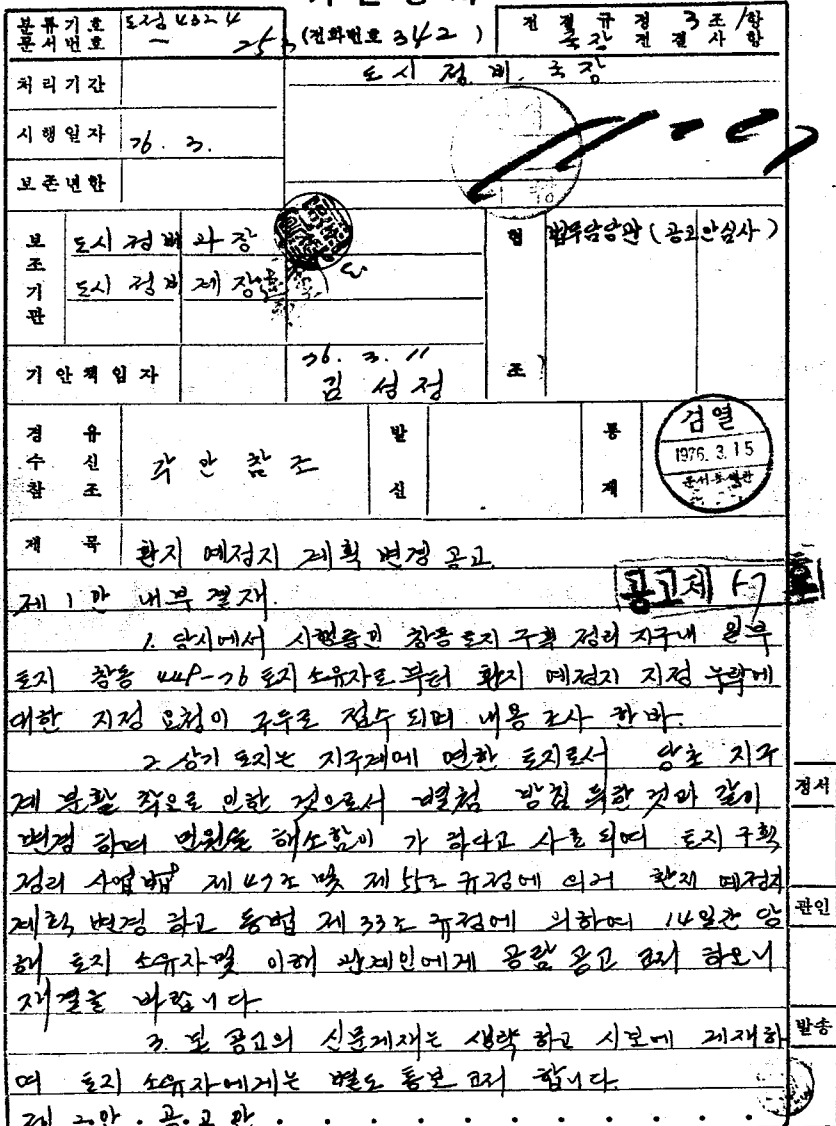 분류기호 문서번호 도정 4324 - 253 (전화번호 342) 전결규정 3조 1항 국장 전결사항
처리기간 도시정비국장
시행일자 76. 3.
보존년한
보조기관 도시정비과장 협조 법무담당관 (공고안심사)
도시정비계장
기안책임자 76. 3. 11 김성정
경유 수신 참조 각안 참조 발신 통제
검열
1976. 3. 15
제목 환지 예정지 계획 변경 공고
제 1 안 내부결재. 공고제 호
1. 당시에서 시행중인 창동 토지 구획 정리 지구내 원부
토지 창동 448-76 토지 소유자로 부터 환지 예정지 지정 누락에
대한 지정 요청이 구두로 접수 되여 내용 조사 한바.
2. 상기 토지는 지구계에 면한 토지로서 당초 지구
계 분할 착오로 인한 것으로서 별첨 방침 득한 것과 같이
변경 하여 민원을 해소함이 가 하다고 사료 되여 토지 구획
정리 사업법 제 47조 및 제 55조 규정에 의거 환지 예정지
계획 변경 하고 동법 제 33조 규정에 의하여 14일간 당
해 토지 소유자 및 이해 관계인에게 공람 공고 코저 하오니
재결을 바랍니다.
3. 본 공고의 신문게재는 생략 하고 시보에 게재하
여 토지 소유자에게는 별도 통보 코저 합니다.
제 2안. 공.고.안
정서
관인
발송